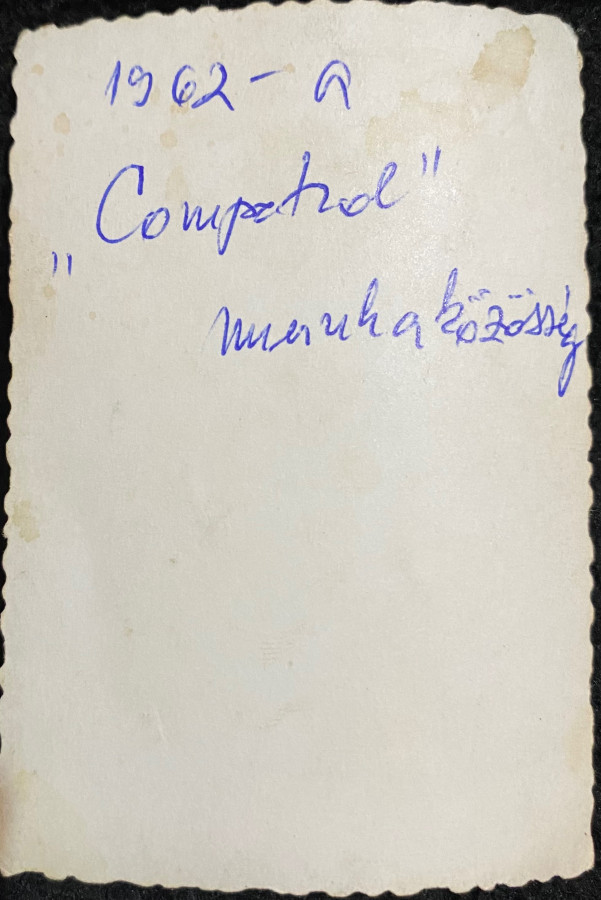 1962 - a
„Compatrol”
munkaközösség